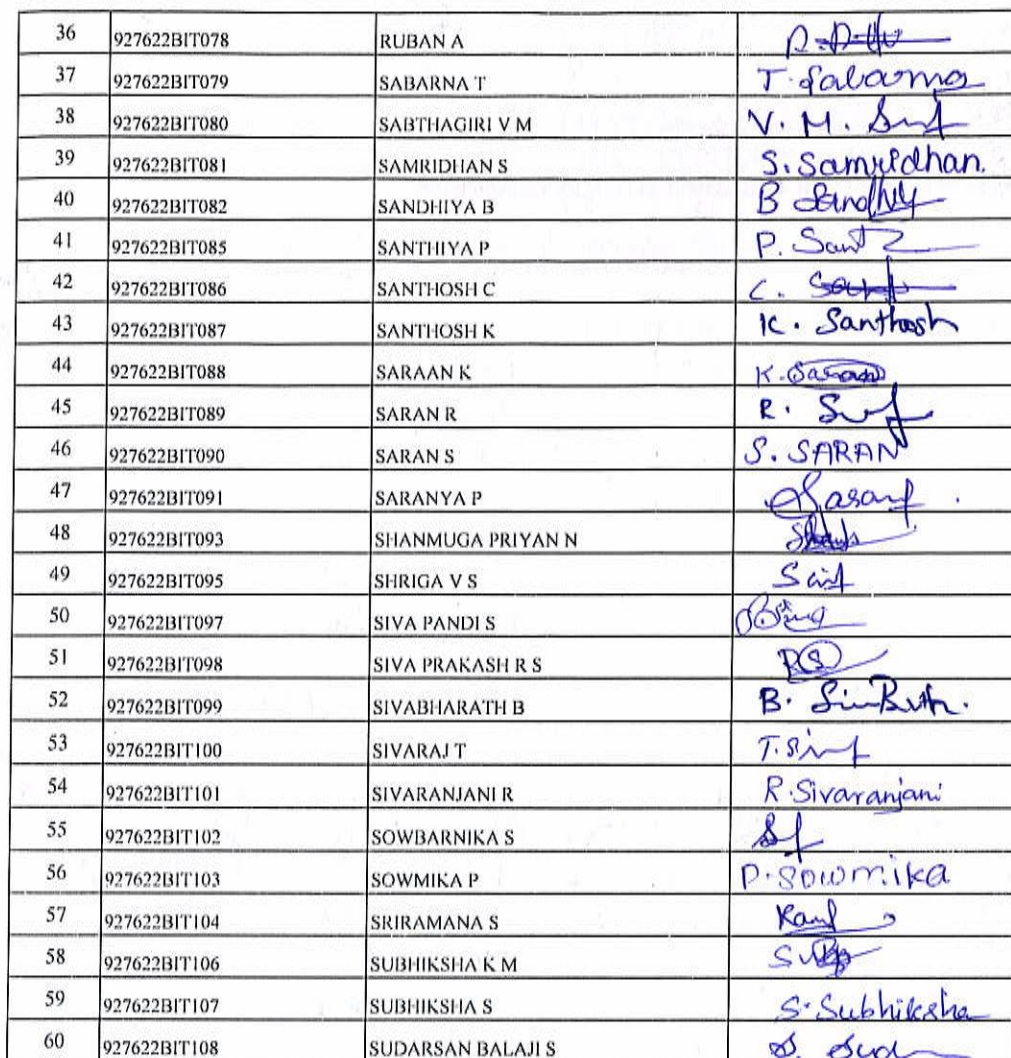 36 927622BIT078 RUBAN A
37 927622BIT079 SABARNA T T. Sabarna
38 927622BIT080 SABTHAGIRI V M V. M.
39 927622BIT081 SAMRIDHAN S S. Samridhan.
40 927622BIT082 SANDHIYA B B
41 927622BIT085 SANTHIYA P P. Sant
42 927622BIT086 SANTHOSH C C.
43 927622BIT087 SANTHOSH K K. Santhosh
44 927622BIT088 SARAAN K K. Saraan
45 927622BIT089 SARAN R R.
46 927622BIT090 SARAN S S. SARAN
47 927622BIT091 SARANYA P
48 927622BIT093 SHANMUGA PRIYAN N
49 927622BIT095 SHRIGA V S
50 927622BIT097 SIVA PANDI S
51 927622BIT098 SIVA PRAKASH R S RS
52 927622BIT099 SIVABHARATH B B.
53 927622BIT100 SIVARAJ T T.
54 927622BIT101 SIVARANJANI R R. Sivaranjani
55 927622BIT102 SOWBARNIKA S
56 927622BIT103 SOWMIKA P P. Sowmika
57 927622BIT104 SRIRAMANA S
58 927622BIT106 SUBHIKSHA K M
59 927622BIT107 SUBHIKSHA S S. Subhiksha
60 927622BIT108 SUDARSAN BALAJI S S.